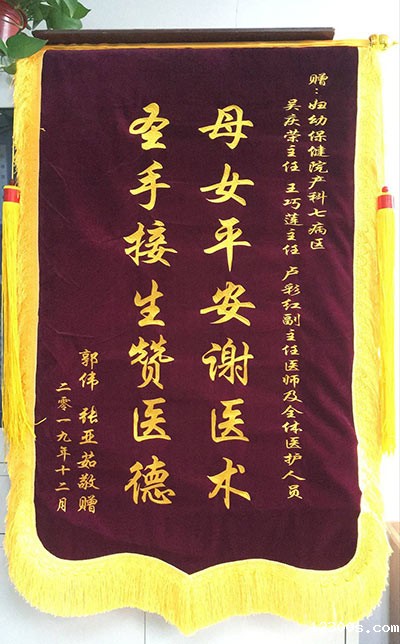 赠：妇幼保健院产科七病区
吴庆荣主任 王巧莲主任 卢彩红副主任医师及全体医护人员
母女平安谢医术
圣手接生赞医德
郭伟 张亚茹敬赠
二零一九年十二月